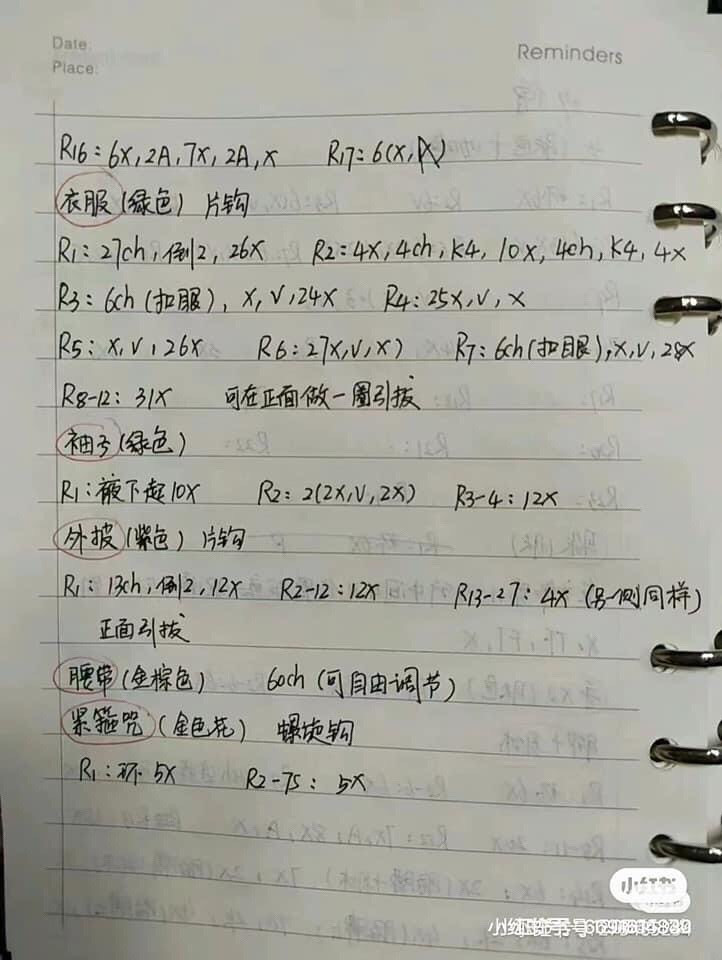 Date:
Place:
Reminders
R16：6X, 2A, 7X, 2A, X  R17：6(X, A)
衣服(绿色) 片钩
R1：27ch, 倒2, 26X  R2：4X, 4ch, K4, 10X, 4ch, K4, 4X
R3：6ch(扣服), X, V, 24X  R4：25X, V, X
R5：X, V, 26X  R6：27X, V, X)  R7：6ch(扣眼), X, V, 28X
R8-12：31X  可在正面做一圈引拔
袖子(绿色)
R1：腋下起10X  R2：2(2X, V, 2X)  R3-4：12X
外披(紫色) 片钩
R1：13ch, 倒2, 12X  R2-12：12X  R13-27：4X (另一侧同样)
正面引拔
腰带(金棕色)  60ch(可自由调节)
紧箍咒(金色花) 螺旋钩
R1：环5X  R2-75：5X
小红书
小红书号